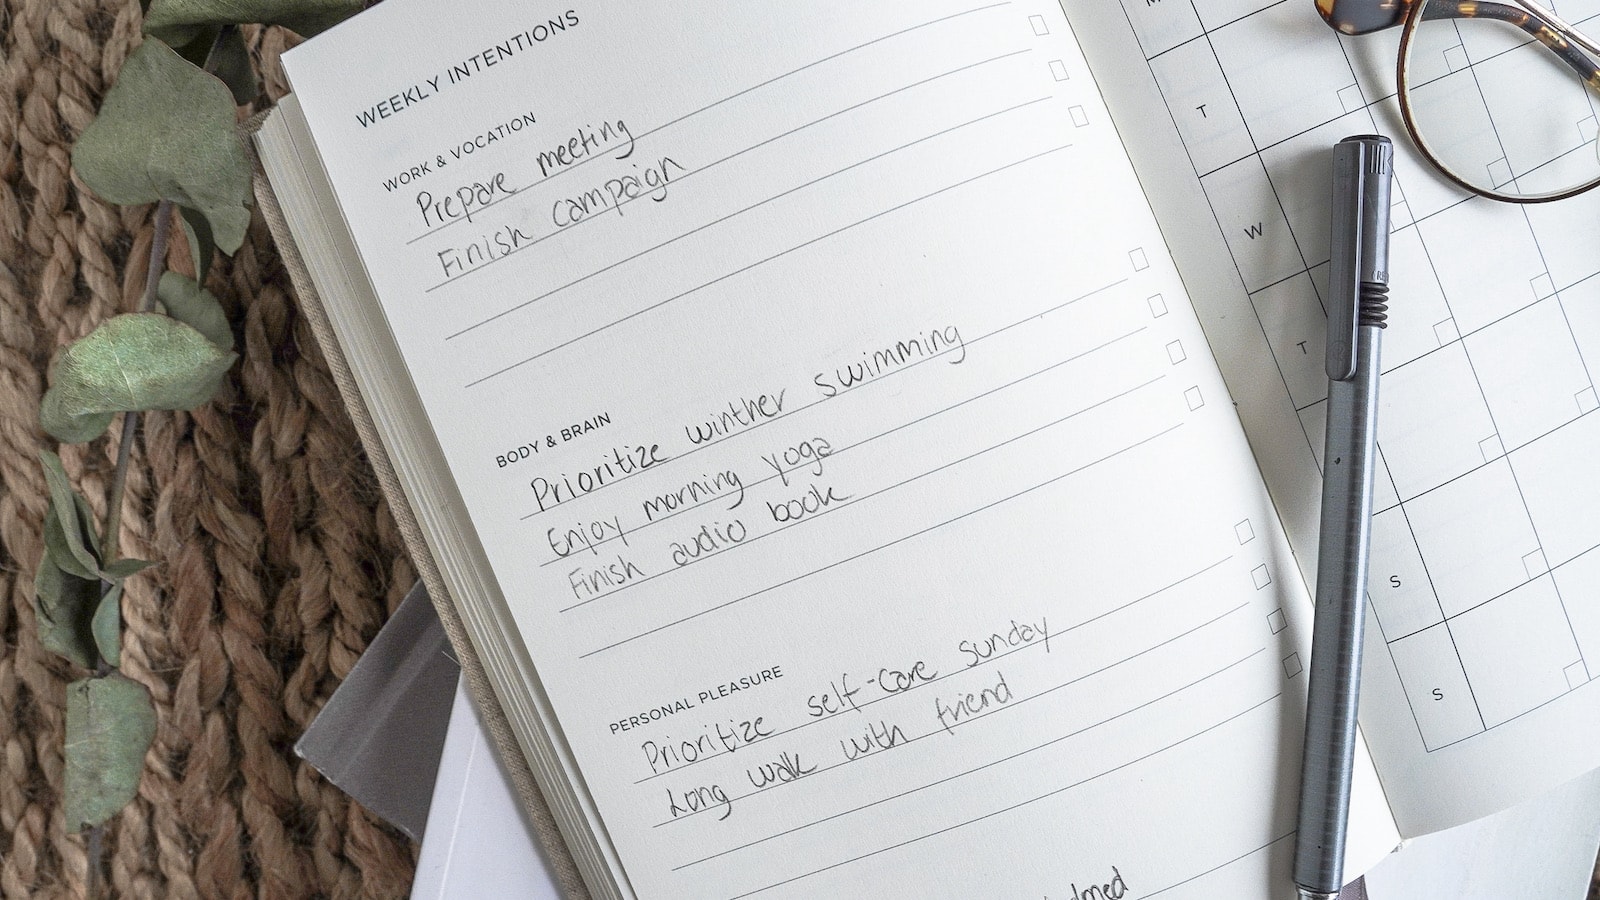 WEEKLY INTENTIONS
WORK & VOCATION
Prepare meeting
Finish campaign
BODY & BRAIN
Prioritize winther swimming
Enjoy morning yoga
Finish audio book
PERSONAL PLEASURE
Prioritize self-care sunday
Long walk with friend
T
W
T
S
S